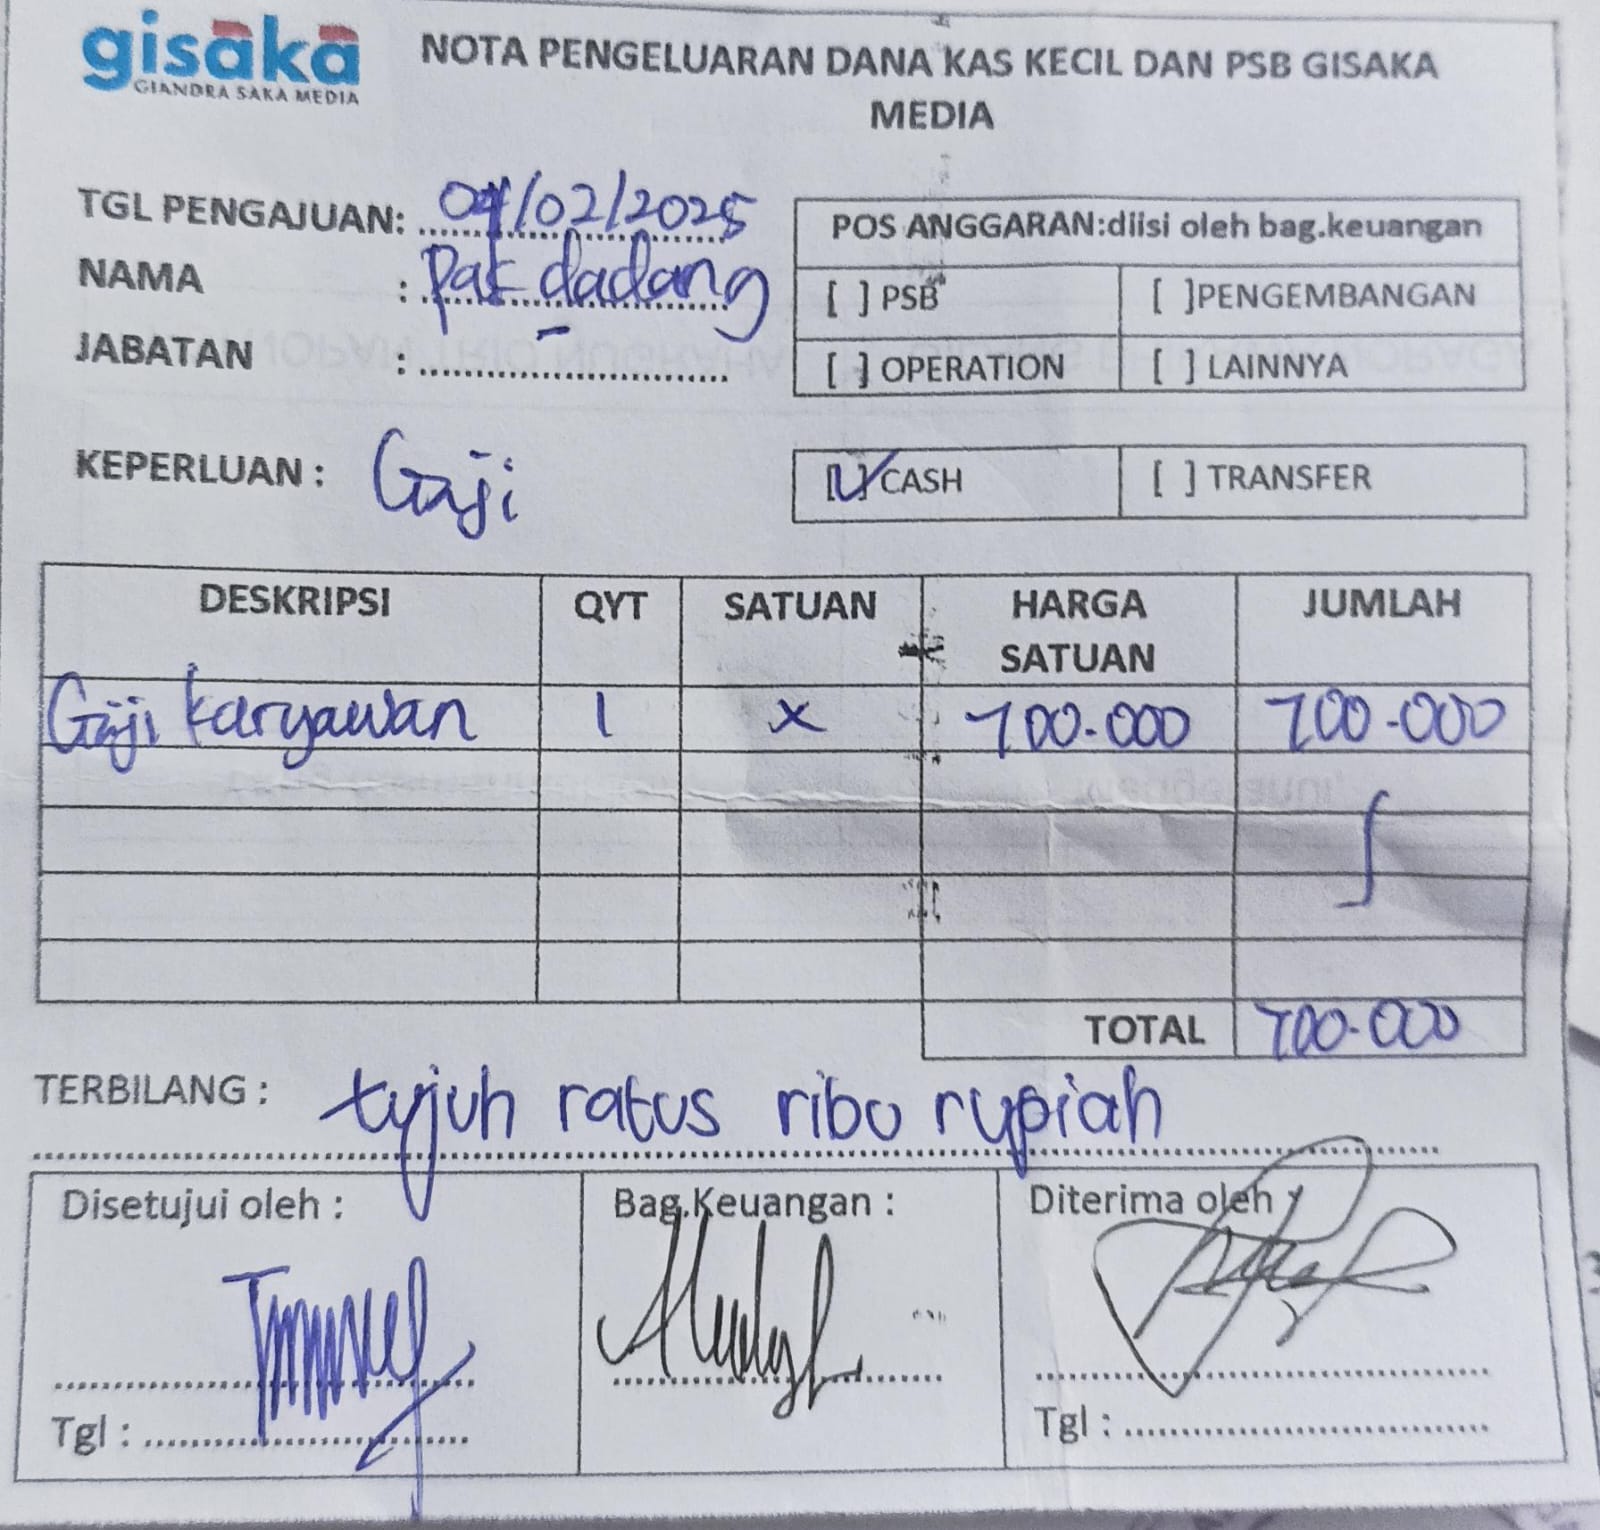 gisaka
GIANDRA SAKA MEDIA
NOTA PENGELUARAN DANA KAS KECIL DAN PSB GISAKA
MEDIA
TGL PENGAJUAN: 04/02/2025
NAMA : Pak dadang
JABATAN : -
POS ANGGARAN:diisi oleh bag.keuangan
[ ] PSB [ ]PENGEMBANGAN
[ ] OPERATION [ ] LAINNYA
KEPERLUAN : Gaji
[✓] CASH [ ] TRANSFER
DESKRIPSI QYT SATUAN HARGA SATUAN JUMLAH
Gaji karyawan 1 x 700.000 700.000
TOTAL 700.000
TERBILANG : tujuh ratus ribu rupiah
Disetujui oleh : Bag.Keuangan : Diterima oleh :
Tgl : Tgl :